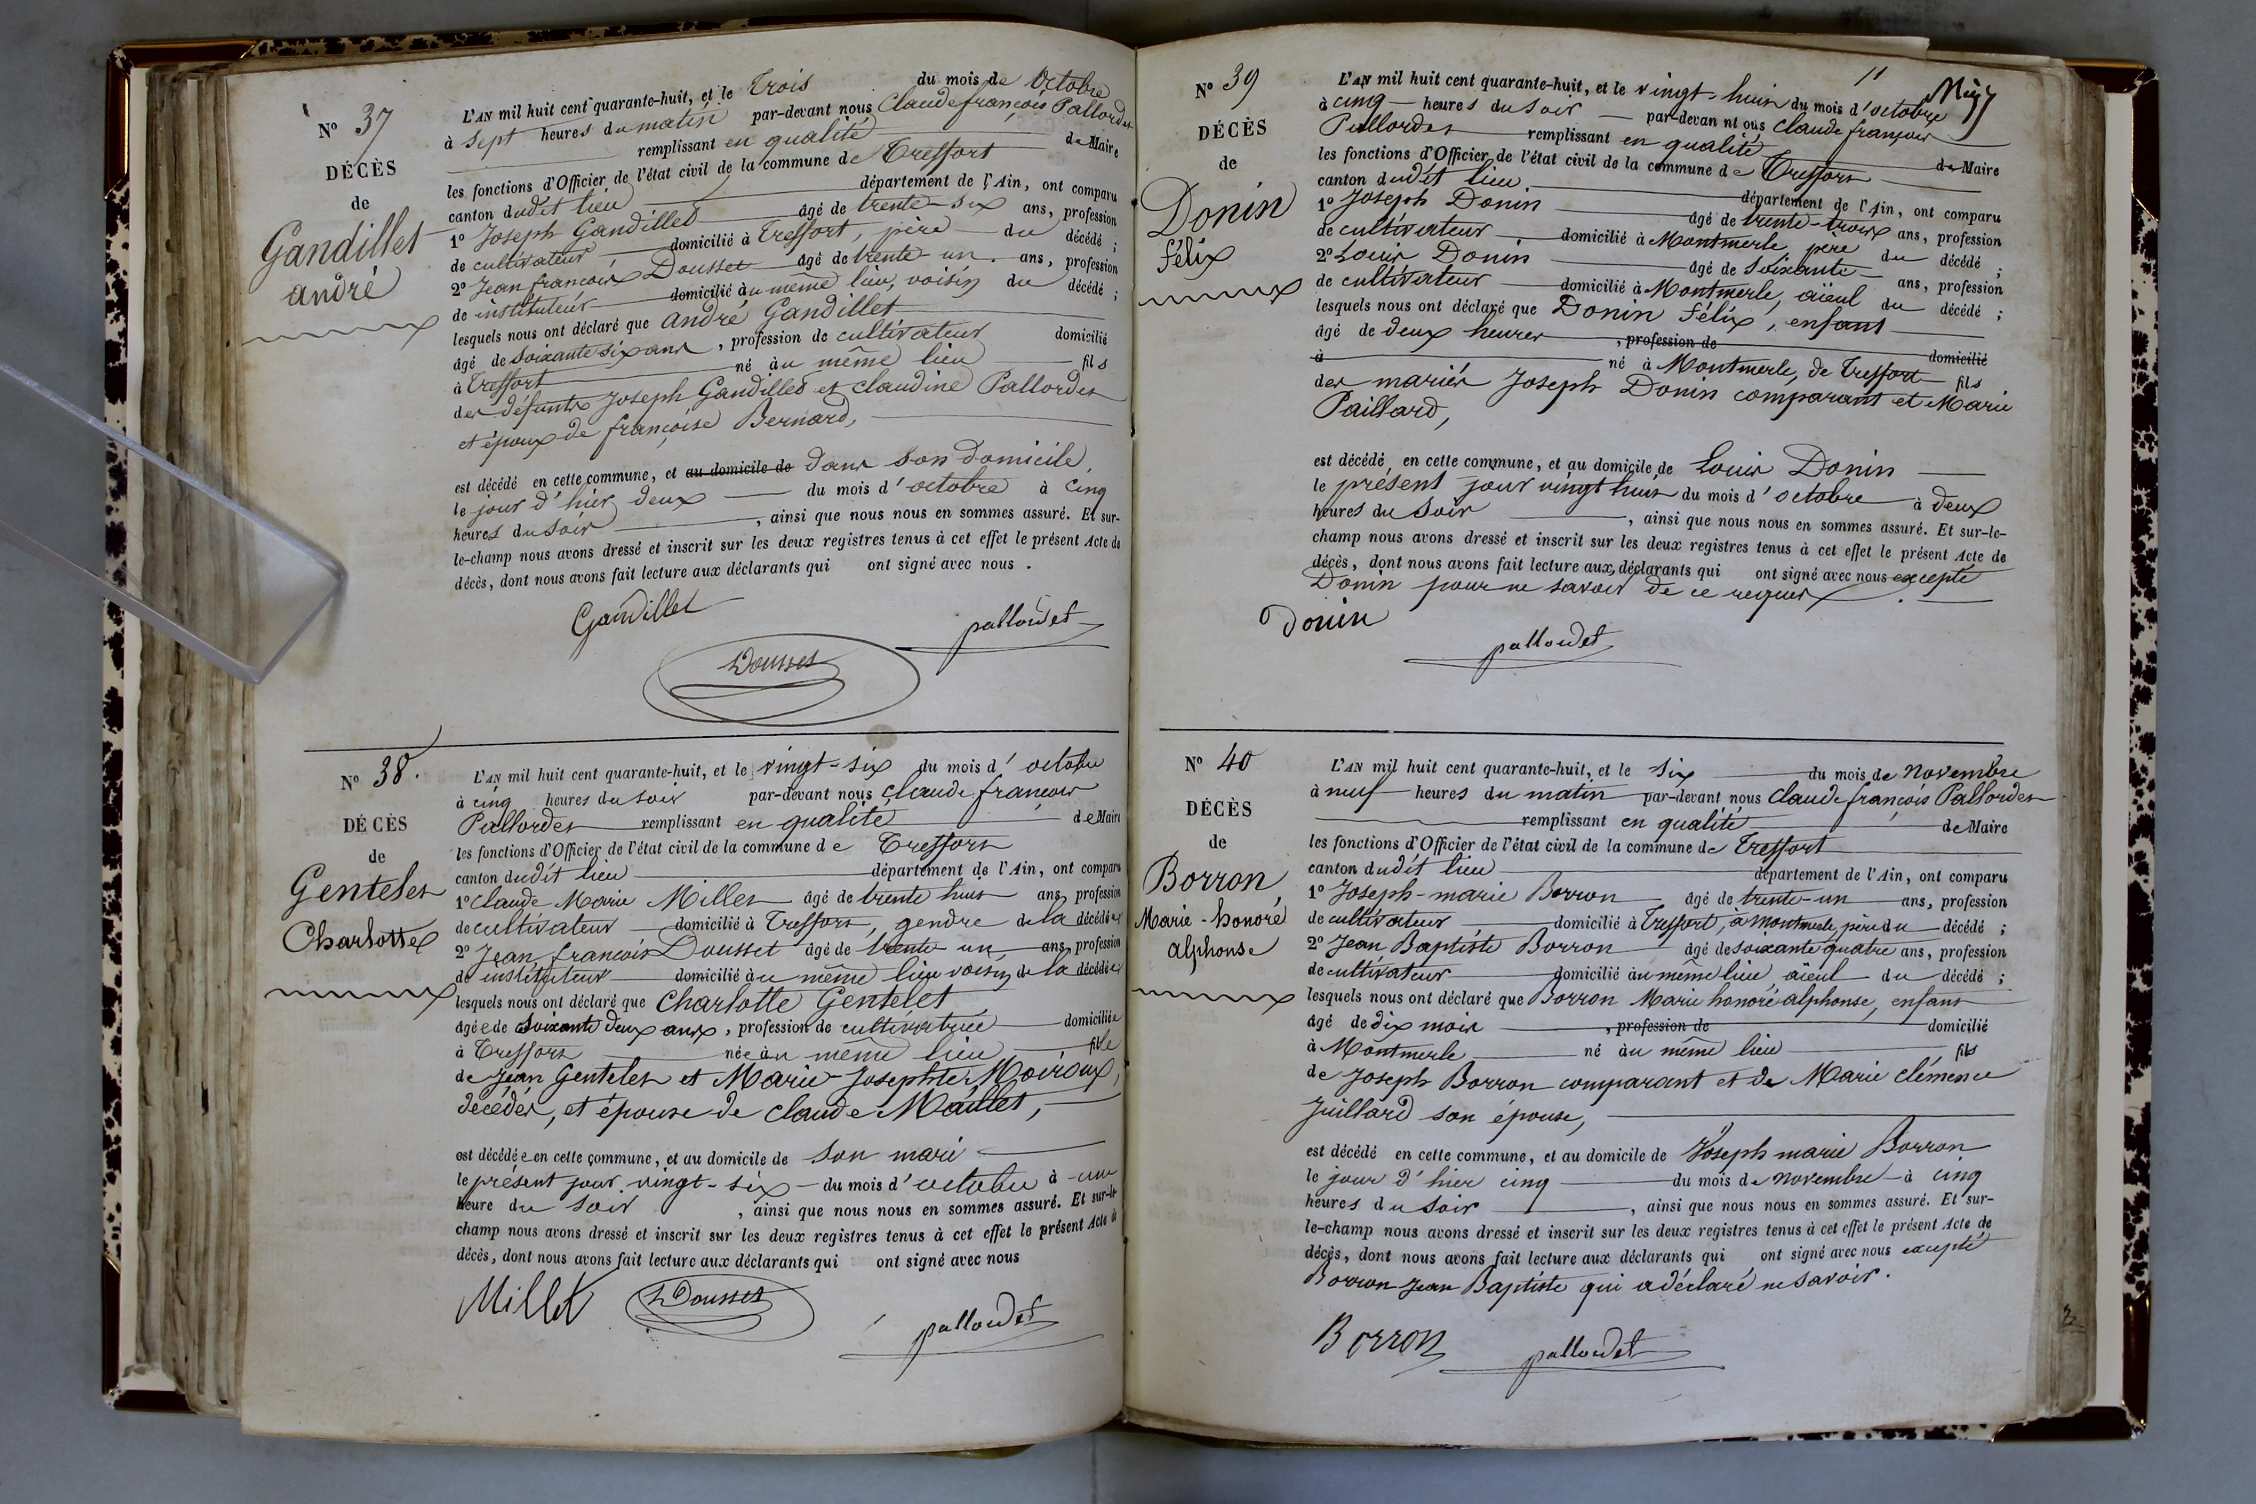 N° 37
DÉCÈS
de
Gandillet
andré
L'AN mil huit cent quarante-huit, et le Trois du mois de Octobre
à sept heures du matin par-devant nous Claude françois Pallordet
remplissant en qualité de Maire
les fonctions d'Officier de l'état civil de la commune de Treffort
canton dudit lieu département de l'Ain, ont comparu
1° Joseph Gandillet âgé de trente-six ans, profession
de cultivateur domicilié à Treffort, père du décédé ;
2° Jean françois Dousset âgé de trente-un ans, profession
de instituteur domicilié au même lieu, voisin du décédé ;
lesquels nous ont déclaré que andré Gandillet
âgé de soixante six ans, profession de cultivateur domicilié
à Treffort né au même lieu fils
des défunts Joseph Gandillet et claudine Pallordet
et époux de françoise Bernard,
est décédé en cette commune, et au domicile de dans son domicile,
le jour d'hier deux du mois d'octobre à cinq
heures du soir, ainsi que nous nous en sommes assuré. Et sur-
le-champ nous avons dressé et inscrit sur les deux registres tenus à cet effet le présent Acte de
décès, dont nous avons fait lecture aux déclarants qui ont signé avec nous.
Gandillet
pallordet
Dousset
N° 38.
DÉCÈS
de
Gentelet
Charlotte
L'AN mil huit cent quarante-huit, et le vingt-six du mois d'octobre
à cinq heures du soir par-devant nous claude françois
Pallordet remplissant en qualité de Maire
les fonctions d'Officier de l'état civil de la commune de Treffort
canton dudit lieu département de l'Ain, ont comparu
1° Claude Marie Millet âgé de trente huit ans, profession
de cultivateur domicilié à Treffort, gendre de la décédée
2° Jean françois Dousset âgé de trente-un ans, profession
de instituteur domicilié au même lieu voisin de la décédée
lesquels nous ont déclaré que Charlotte Gentelet
âgée de soixante deux ans, profession de cultivatrice domiciliée
à Treffort née au même lieu fille
de Jean Gentelet et Marie-Josephte Moiroux,
décédés, et épouse de claude Maillet,
est décédée en cette commune, et au domicile de son mari
le présent jour vingt-six du mois d'octobre à une
heure du soir, ainsi que nous nous en sommes assuré. Et sur-le-
champ nous avons dressé et inscrit sur les deux registres tenus à cet effet le présent Acte de
décès, dont nous avons fait lecture aux déclarants qui ont signé avec nous
Millet Dousset
pallordet
11
N° 39
DÉCÈS
de
Donin
félix
L'AN mil huit cent quarante-huit, et le vingt-huit du mois d'octobre
à cinq heures du soir par-devant nous Claude françois
Pallordet remplissant en qualité de Maire
les fonctions d'Officier de l'état civil de la commune de Treffort
canton dudit lieu. département de l'Ain, ont comparu
1° Joseph Donin âgé de trente-trois ans, profession
de cultivateur domicilié à Montmerle père du décédé ;
2° Louis Donin âgé de soixante ans, profession
de cultivateur domicilié à Montmerle, aïeul du décédé ;
lesquels nous ont déclaré que Donin félix, enfant
âgé de deux heures, profession de domicilié
à né à Montmerle, de Treffort fils
des mariés Joseph Donin comparant et Marie
Paillard,
est décédé en cette commune, et au domicile de Louis Donin
le présent jour vingt huit du mois d'octobre à deux
heures du soir, ainsi que nous nous en sommes assuré. Et sur-le-
champ nous avons dressé et inscrit sur les deux registres tenus à cet effet le présent Acte de
décès, dont nous avons fait lecture aux déclarants qui ont signé avec nous excepté
Donin pour ne savoir de ce requis
Donin
pallordet
N° 40
DÉCÈS
de
Borron
Marie-honoré
alphonse
L'AN mil huit cent quarante-huit, et le six du mois de novembre
à neuf heures du matin par-devant nous Claude françois Pallordet
remplissant en qualité de Maire
les fonctions d'Officier de l'état civil de la commune de Treffort
canton dudit lieu département de l'Ain, ont comparu
1° Joseph-marie Borron âgé de trente-un ans, profession
de cultivateur domicilié à Treffort, à Montmerle, père du décédé ;
2° Jean Baptiste Borron âgé de soixante quatre ans, profession
de cultivateur domicilié au même lieu, aïeul du décédé ;
lesquels nous ont déclaré que Borron Marie honoré alphonse, enfant
âgé de dix mois, profession de domicilié
à Montmerle né au même lieu fils
de Joseph Borron comparant et de Marie clémence
Juillard son épouse,
est décédé en cette commune, et au domicile de Joseph marie Borron
le jour d'hier cinq du mois de novembre à cinq
heures du soir, ainsi que nous nous en sommes assuré. Et sur-
le-champ nous avons dressé et inscrit sur les deux registres tenus à cet effet le présent Acte de
décès, dont nous avons fait lecture aux déclarants qui ont signé avec nous excepté
Borron Jean Baptiste qui a déclaré ne savoir.
Borron
pallordet